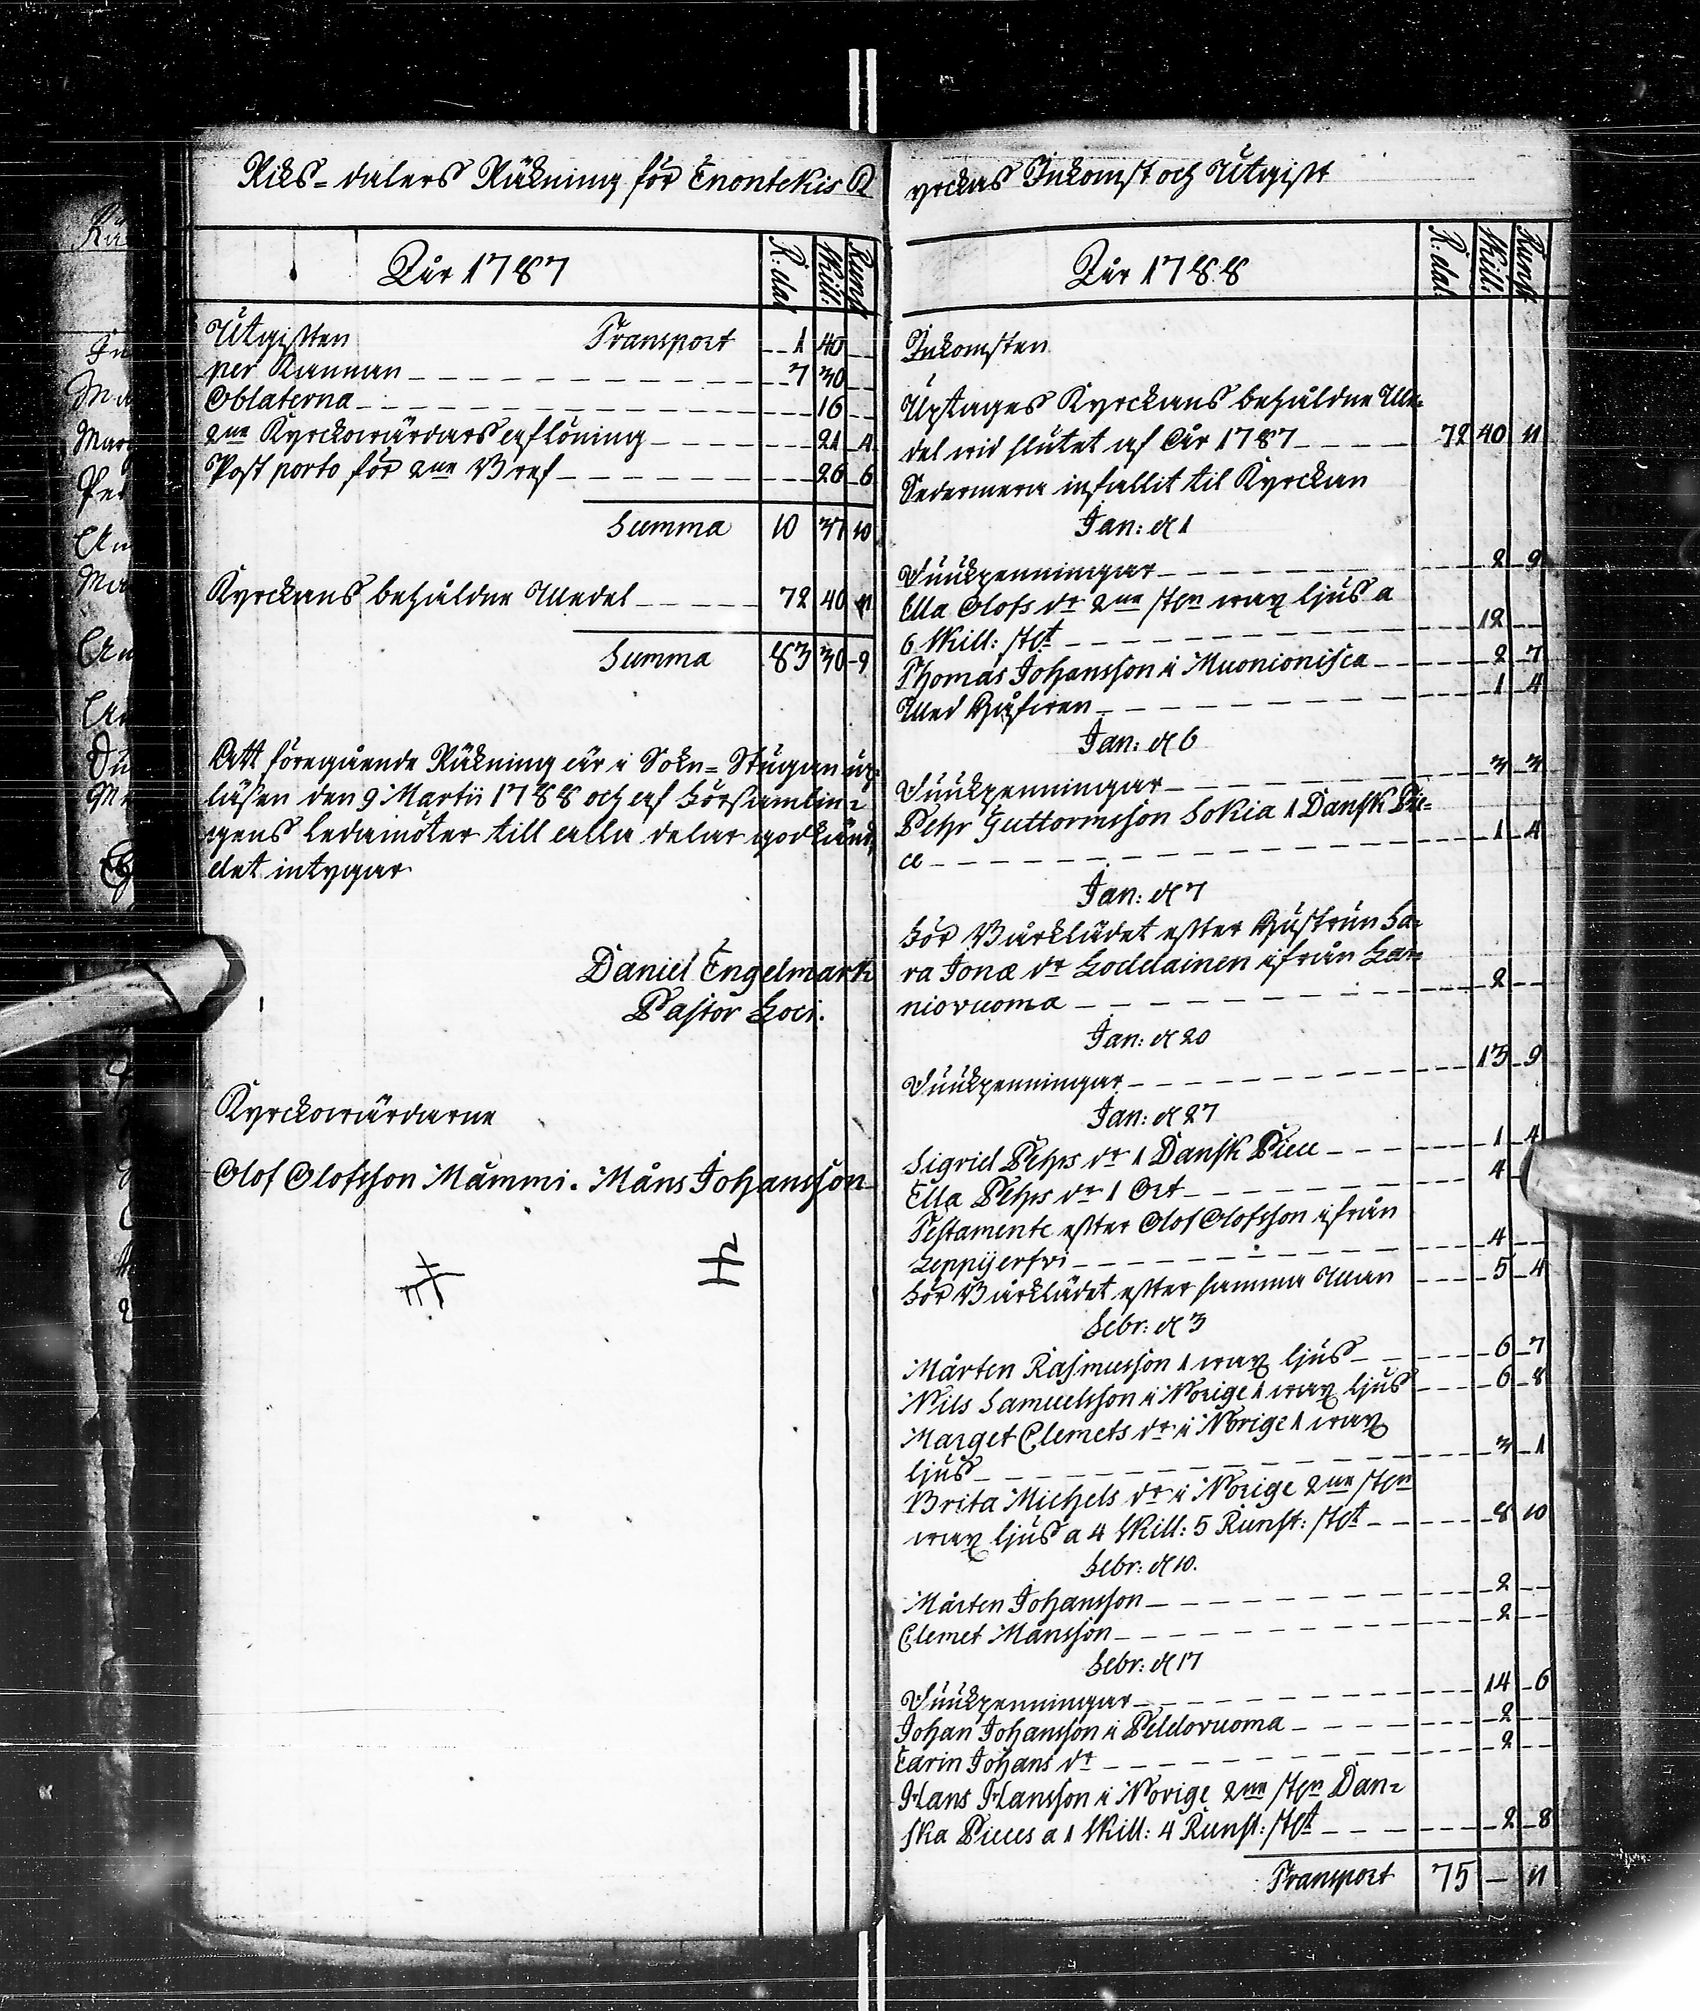 Riks-dalers Räkning för Enontekis K
År 1787
R: dal
Skill:
Runst
Utgiften Transport 1 40
per Kannan 7 30
Oblaterna 16
2ne Kyrckowärdars aflöning 21 4
Post porto för 2ne Bref 26 6
Summa 10 37 10
Kyrckans behåldne Medel 72 40 11
Summa 83 30 9
Att föregående Räkning är i Sokn-Stugan up-
läsen den 9 Martii 1788 och af Församlin-
gens Ledamöter till alla delar godkänd,
det intygar
Daniel Engelmark
Pastor Loci.
Kyrckowärdarne
Olof Olofsson Mämmi. Måns Johansson
yrckas Inkomst och Utgift
År 1788
R: dal
Skill:
Runst
Inkomsten
Uptages Kyrckans behåldne Me-
del wid slutet af År 1787 72 40 11
Sedermera infallit til Kyrckan
Jan: d 1
Säükpenningar 2 9
Ella Olofs dr 2ne st:n wax ljus a
6 Skill: st:t 12
Thomas Johansson i Muonionisca 2 7
Med Håfwen 1 4
Jan: d 6
Säükpenningar 3 3
Pehr Guttormsson Sokia 1 Dansk Pie-
ce 1 4
Jan: d 7
För Bårklädet efter Hustrun Sa-
ra Jonæ dr Lodelainen ifrån Lai-
niovuoma 2
Jan: d 20
Säükpenningar 13 9
Jan: d 27
Sigrid Pehrs dr 1 Dansk Piece 1 4
Ella Pehrs dr 1 Ort 4
Testamente efter Olof Olofsson ifrån
Leppijerfvi 4
För Bårklädet efter samma Man 5 4
Febr: d 3
Mårten Rasmusson 1 wax ljus 6 7
Nils Samuelsson i Norige 1 wax ljus 6 8
Marget Clemets dr i Norige 1 wax
ljus 3 1
Brita Michels dr i Norige 2ne st:n
wax ljus a 4 Skill: 5 Runst: st:t 8 10
Febr: d 10.
Mårten Johansson 2
Clemet Månsson 2
Febr: d 17
Säükpenningar 14 6
Johan Johansson i Peldovuoma 2
Carin Johans dr 2
Hans Hansson i Norige 2ne st:n Dan-
ska Pieces a 1 Skill: 4 Runst: st:t 2 8
Transport 75 — 11